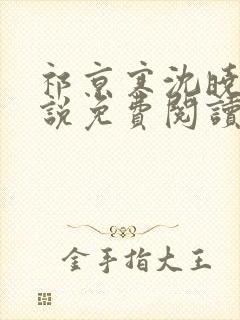 祁京寒沈曉
說免費閱讀
金手指大王